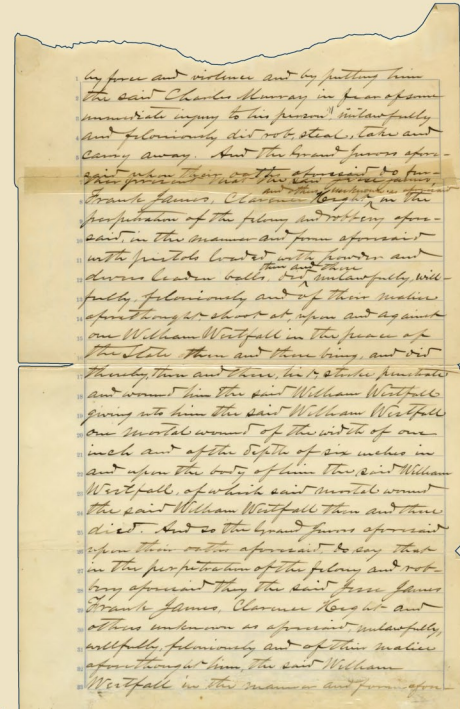 by force and violence and by putting him
the said Charles Murray in fear of some
immediate injury to his person unlawfully
and feloniously did rob, steal, take and
carry away. And the Grand Jurors afore-
said upon their oaths aforesaid do fur-
ther present that the said Jesse James,
and others unknown as aforesaid
Frank James, Clarence Hight in the
perpetration of the felony and robbery afore-
said, in the manner and form aforesaid
with pistols loaded with powder and
then and there
divers leaden balls, did unlawfully, will-
fully, feloniously and of their malice
aforethought shoot at, upon and against
one William Westfall in the peace of
the State then and there being, and did
thereby, then and there, hit, strike penetrate
and wound him the said William Westfall
giving unto him the said William Westfall
one mortal wound of the width of one
inch and of the depth of six inches in
and upon the body of him the said William
Westfall, of which said mortal wound
the said William Westfall then and there
died. And so the Grand Jurors aforesaid
upon their oaths aforesaid, do say that
in the perpetration of the felony and rob-
bery aforesaid they the said Jesse James
Frank James, Clarence Hight and
others unknown as aforesaid, unlawfully,
willfully, feloniously and of their malice
aforethought him, the said William
Westfall in the manner and form afore-